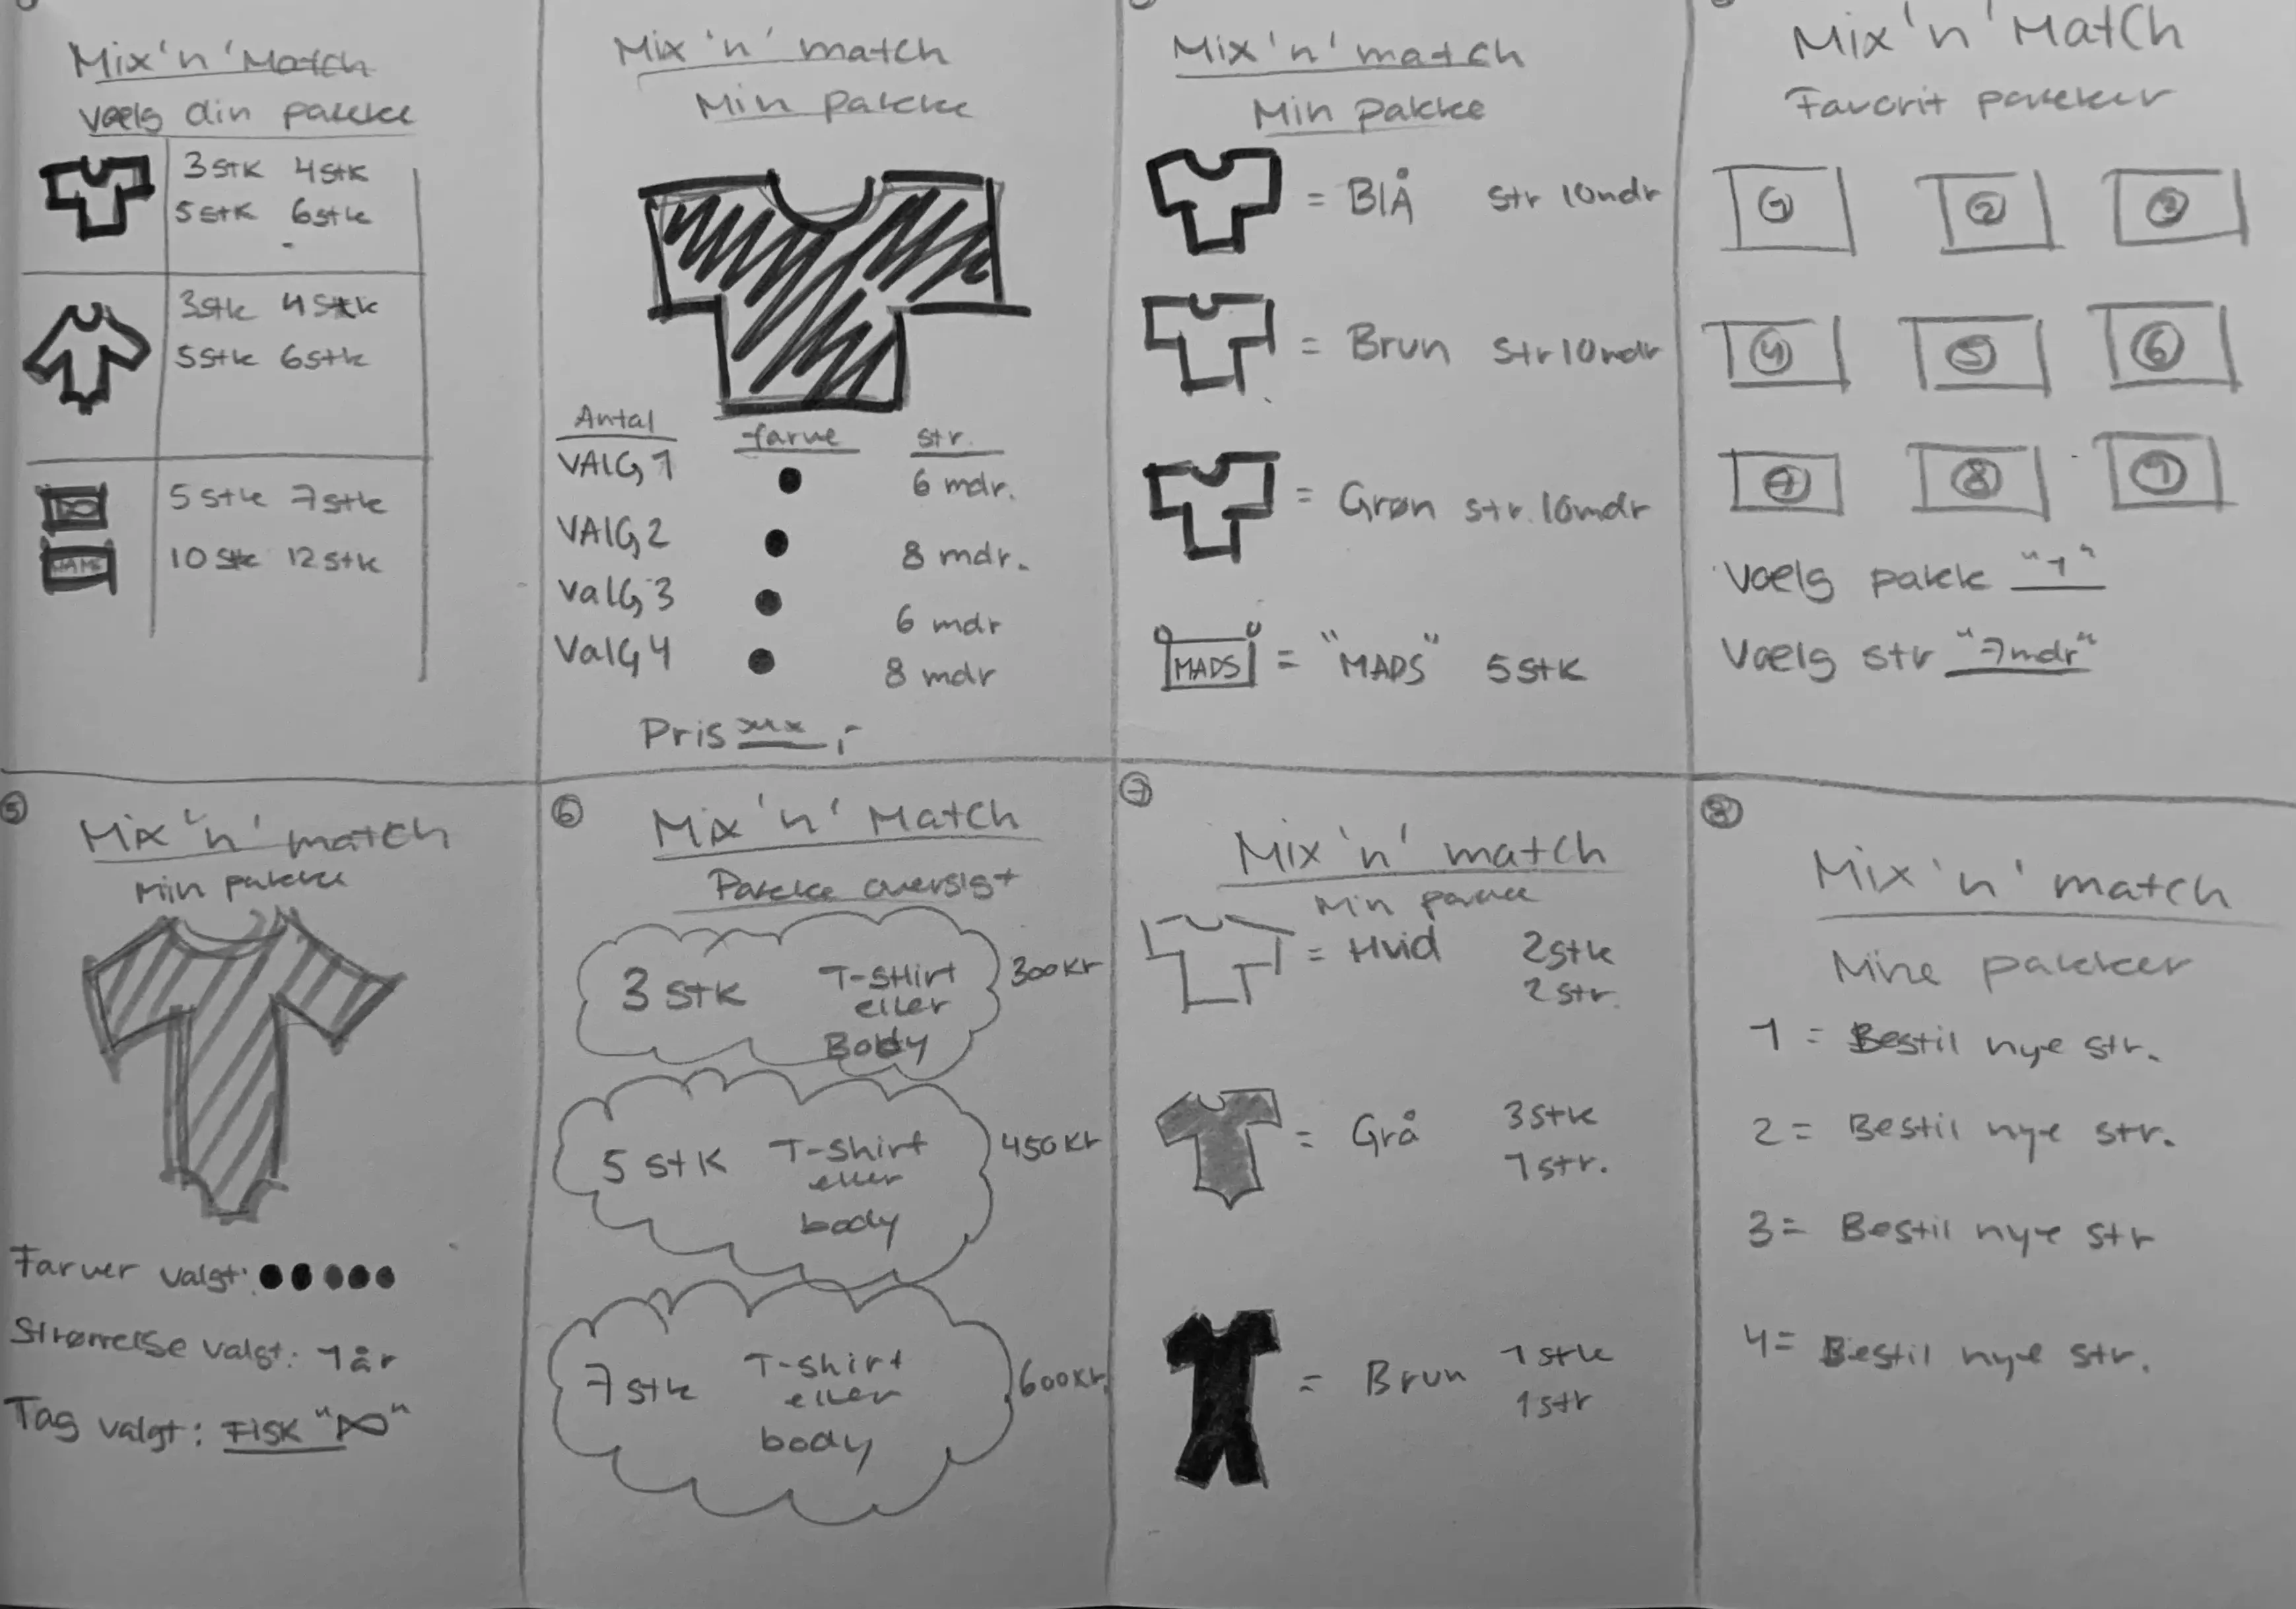 Mix 'n' Match
Vælg din pakke
3 stk 4 stk
5 stk 6 stk
3 stk 4 stk
5 stk 6 stk
5 stk 7 stk
10 stk 12 stk
Mix 'n' match
Min pakke
Antal farve str.
VALG 1 6 mdr.
VALG 2 8 mdr.
VALG 3 6 mdr
VALG 4 8 mdr
Pris xxx ,-
Mix 'n' match
Min pakke
= Blå str 10mdr
= Brun str 10mdr
= Grøn str. 10mdr
MADS = "MADS" 5 stk
Mix 'n' Match
Favorit pakker
1 2 3
4 5 6
7 8 9
Vælg pakk "1"
Vælg str "7mdr"
5
Mix 'n' match
Min pakke
Farver valgt:
Størrelse valgt: 1 år
Tag valgt: FISK " "
6
Mix 'n' Match
Pakke oversigt
3 stk T-shirt
eller
Body
300 kr
5 stk T-shirt
eller
body
450 kr
7 stk T-shirt
eller
body
600 kr.
7
Mix 'n' match
Min pakke
= Hvid 2 stk
2 str.
= Grå 3 stk
1 str.
= Brun 1 stk
1 str
8
Mix 'n' match
Mine pakker
1 = Bestil nye str.
2 = Bestil nye str.
3 = Bestil nye str
4 = Bestil nye str.